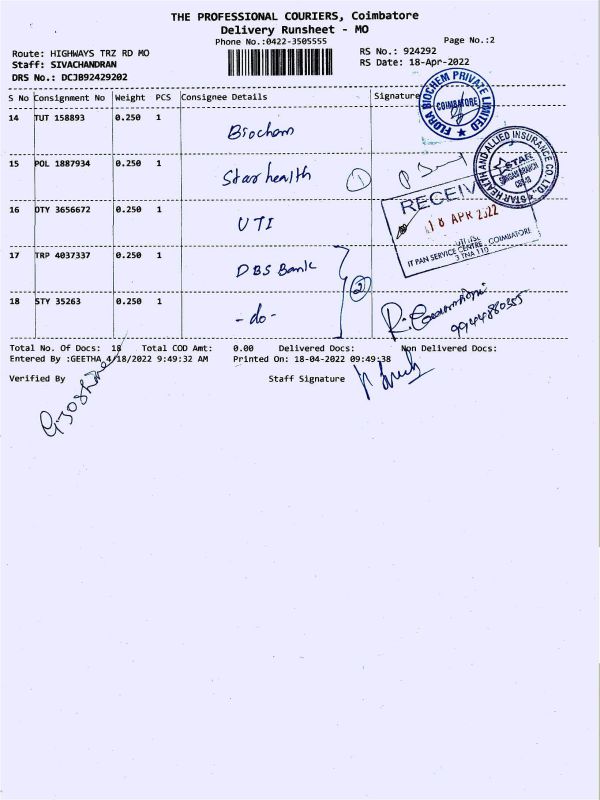 THE PROFESSIONAL COURIERS, Coimbatore
Delivery Runsheet - MO
Phone No.:0422-3505555
Page No.:2
Route: HIGHWAYS TRZ RD MO
RS No.: 924292
Staff: SIVACHANDRAN
RS Date: 18-Apr-2022
DRS No.: DCJB92429202
S No Consignment No Weight PCS Consignee Details Signature
14 TUT 158893 0.250 1 Biochem
FLORA BIOCHEM PRIVATE LIMITED
COIMBATORE
15 POL 1887934 0.250 1 Star health 1
STAR HEALTH AND ALLIED INSURANCE CO. LTD.
16 DTY 3656672 0.250 1 UTI
RECEIV
18 APR 2022
IT PAN SERVICE CENTRE, COIMBATORE
3 TNA 110
17 TRP 4037337 0.250 1 DBS Bank
2
18 STY 35263 0.250 1 - do -
Total No. Of Docs: 18 Total COD Amt: 0.00 Delivered Docs: Non Delivered Docs:
Entered By :GEETHA 4/18/2022 9:49:32 AM Printed On: 18-04-2022 09:49:38
Verified By Staff Signature